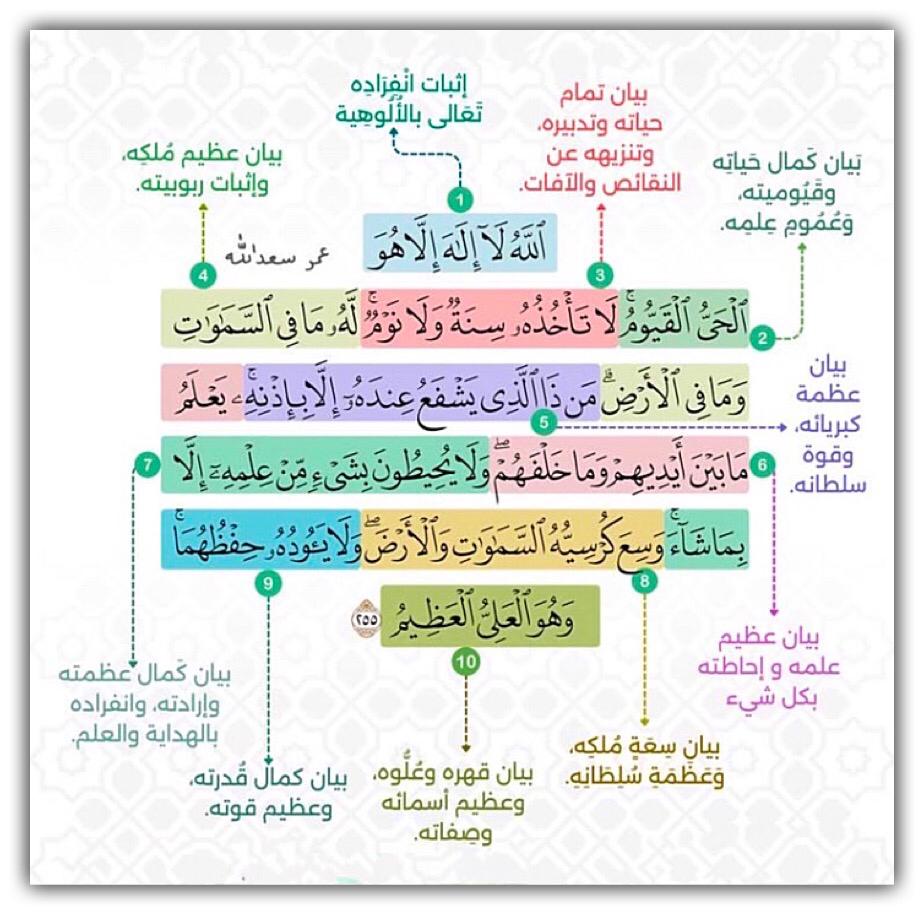 إثبات انْفِرَادِه
تَعَالى بالأُلُوهِية
بيان تمام
حياته وتدبيره،
وتنزيهه عن
النقائص والآفات.
بَيان كَمال حَياتِه
وقَيُوميته،
وَعُمُومِ عِلمِه.
بيان عظيم مُلكِه،
وإثبات ربوبيته.
1
ٱللَّهُ لَآ إِلَـٰهَ إِلَّا هُوَ
عمر سعدالله
4
3
ٱلْحَىُّ ٱلْقَيُّومُ ۚ لَا تَأْخُذُهُۥ سِنَةٌ وَلَا نَوْمٌ ۚ لَّهُۥ مَا فِى ٱلسَّمَـٰوَٰتِ
2
وَمَا فِى ٱلْأَرْضِ ۗ مَن ذَا ٱلَّذِى يَشْفَعُ عِندَهُۥٓ إِلَّا بِإِذْنِهِۦ ۚ يَعْلَمُ
5
بيان
عظمة
كبريائه،
وقوة
سلطانه.
6
مَا بَيْنَ أَيْدِيهِمْ وَمَا خَلْفَهُمْ ۖ وَلَا يُحِيطُونَ بِشَىْءٍ مِّنْ عِلْمِهِۦٓ إِلَّا
7
بِمَا شَآءَ ۚ وَسِعَ كُرْسِيُّهُ ٱلسَّمَـٰوَٰتِ وَٱلْأَرْضَ ۖ وَلَا يَـُٔودُهُۥ حِفْظُهُمَا ۚ
8
9
وَهُوَ ٱلْعَلِىُّ ٱلْعَظِيمُ ٢٥٥
10
بيان عظيم
علمه و إحاطته
بكل شيء
بيان كَمال عظمته
وإرادته، وانفراده
بالهداية والعلم.
بيان سِعَةٍ مُلكِه،
وَعَظَمَةِ سُلطَانِهِ.
بيان كمال قُدرته،
وعظيم قوته.
بيان قهره وعُلُّوه،
وعظيم أسمائه
وصِفاته.